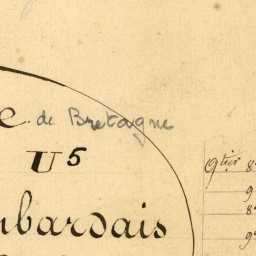 e de Bretagne
U5
nbardais
9tier 8
9
8
9